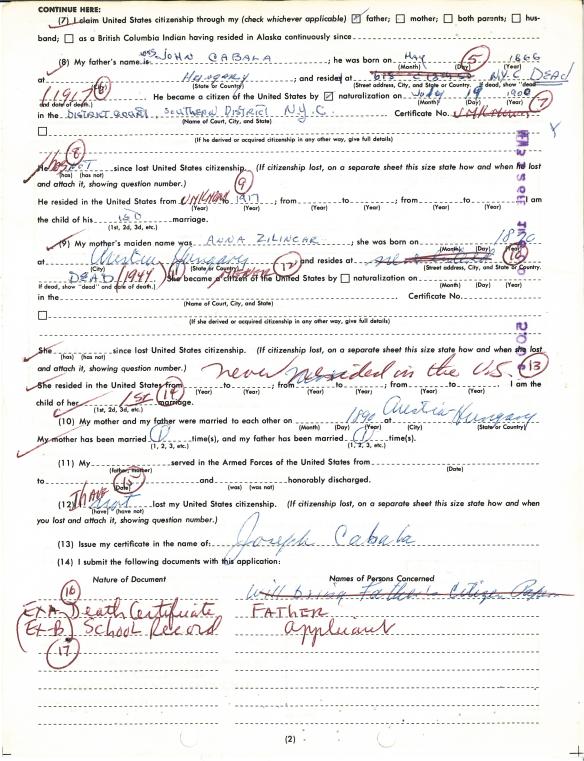 CONTINUE HERE:
(7) I claim United States citizenship through my (check whichever applicable) ☑ father; ☐ mother; ☐ both parents; ☐ hus-
band; ☐ as a British Columbia Indian having resided in Alaska continuously since
(8) My father's name is JOHN CABALA; he was born on MAY 5 1866
(Month) (Day) (Year)
at Hungary; and resides at N.Y.C DEAD
(State or Country) (Street address, City, and State or Country. If dead, show "dead"
(1917) 6 He became a citizen of the United States by ☑ naturalization on July 19 1900
and date of death.) (Month) (Day) (Year) 7
in the DISTRICT COURT SOUTHERN DISTRICT N.Y.C. Certificate No.
(Name of Court, City, and State)
☐
(If he derived or acquired citizenship in any other way, give full details)
8
He has since lost United States citizenship. (If citizenship lost, on a separate sheet this size state how and when he lost
(has) (has not)
and attach it, showing question number.) 9
He resided in the United States from UNKNOWN to 1917; from to; from to; from to; I am
(Year) (Year) (Year) (Year) (Year) (Year) (Year) (Year)
the child of his marriage.
(1st, 2d, 3d, etc.)
(9) My mother's maiden name was ANNA ZILINCAR; she was born on 1870
(Month) (Day) (Year)
at Austria Hungary and resides at 10
(City) (State or Country) (Street address, City, and State or Country.
DEAD (1947) 11 She became a citizen of the United States by ☐ naturalization on 12
If dead, show "dead" and date of death.) (Month) (Day) (Year)
in the Certificate No.
(Name of Court, City, and State)
☐
(If she derived or acquired citizenship in any other way, give full details)
She since lost United States citizenship. (If citizenship lost, on a separate sheet this size state how and when she lost
(has) (has not)
and attach it, showing question number.) never resided in the U.S. 13
She resided in the United States from to; from to; from to; from to; I am the
(Year) (Year) (Year) (Year) (Year) (Year) (Year) (Year)
child of her 1st 14 marriage.
(1st, 2d, 3d, etc.)
(10) My mother and my father were married to each other on 1890 at Austria Hungary
(Month) (Day) (Year) (City) (State or Country)
My mother has been married (1) time(s), and my father has been married (1) time(s).
(1, 2, 3, etc.) (1, 2, 3, etc.)
(11) My served in the Armed Forces of the United States from
(father, mother) (Date)
to and honorably discharged.
(Date) (was) (was not)
(12) I have not lost my United States citizenship. (If citizenship lost, on a separate sheet this size state how and when
(have) (have not)
you lost and attach it, showing question number.)
(13) Issue my certificate in the name of: Joseph Cabala
(14) I submit the following documents with this application:
Nature of Document Names of Persons Concerned
16 Will bring Father's Citizen Paper
Ex A- Death Certificate FATHER
(Ex-B) School Record applicant
17
(2)